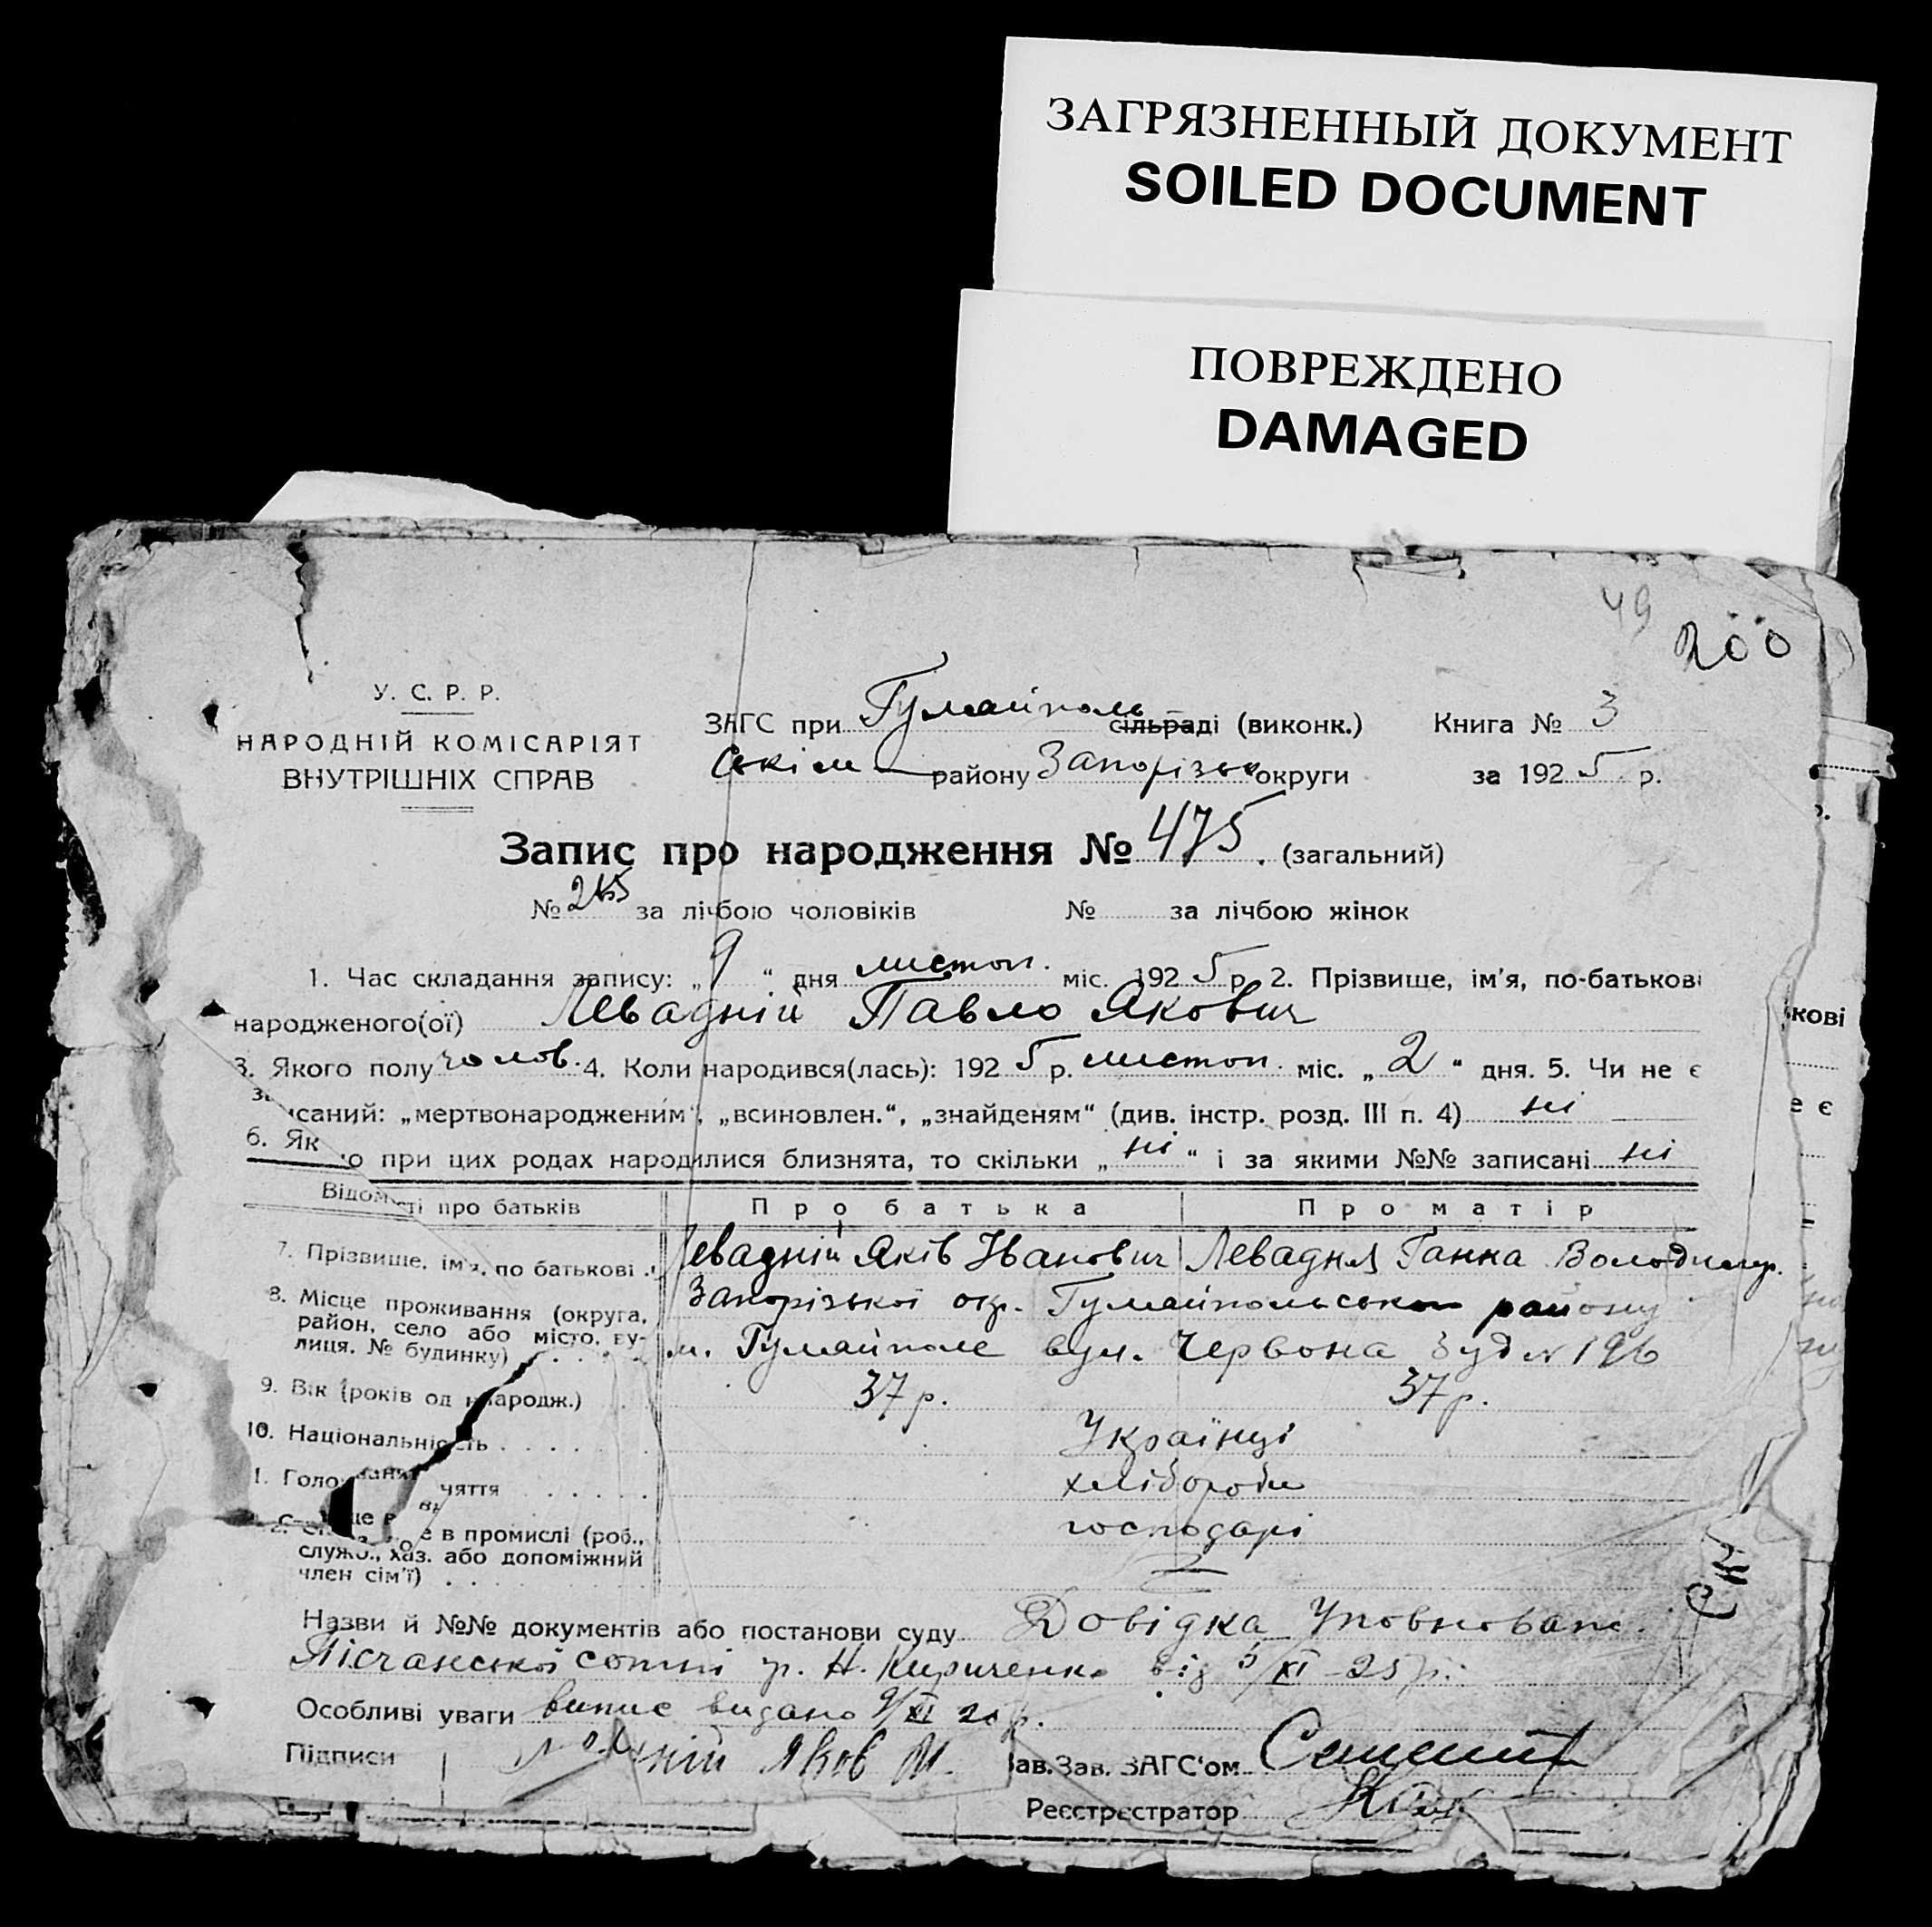 ЗАГРЯЗНЕННЫЙ ДОКУМЕНТ
SOILED DOCUMENT
ПОВРЕЖДЕНО
DAMAGED
49
200
У. С. Р. Р.
НАРОДНІЙ КОМІСАРІЯТ
ВНУТРІШНІХ СПРАВ
ЗАГС при Гумайполь сільраді (виконк.) Книга № 3
ськім району Запорізьк округи за 1925 р.
Запис про народження № 475. (загальний)
№ 265 за лічбою чоловіків № за лічбою жінок
1. Час складання запису: „9“ дня листоп. міс. 1925 р. 2. Прізвище, ім'я, по-батькові
народженого(ої) Левадній Павло Якович
3. Якого полу чолов. 4. Коли народився(лась): 1925 р. листоп. міс. „2“ дня. 5. Чи не є
записаний: „мертвонародженим“, „всиновлен.“, „знайденям“ (див. інстр. розд. III п. 4) ні
6. Як о при цих родах народилися близнята, то скільки „ні“ і за якими №№ записані ні
Відомості про батьків Про батька Про матір
7. Прізвище, ім'я, по батькові Левадній Яків Іванович Левадня Ганна Володимир.
8. Місце проживання (округа, Запорізької окр. Гумайпольського району
район, село або місто, ву-
лиця, № будинку) м. Гумайполе вул. Червона буд № 196
9. Вік (років од народж.) 37 р. 37 р.
10. Національність Українці
Голо няття хлібороби
е в промислі (роб., господарі
служб., хаз. або допоміжний
член сім'ї)
Назви й №№ документів або постанови суду Довідка Уповноваж.
Пісчанської сотні гр. Н. Кириченко від 5/XI-25 р.
Особливі уваги випис видано 9/XI 25 р.
Підписи ній Яков И. Зав. ЗАГС'ом
Реєстрстратор